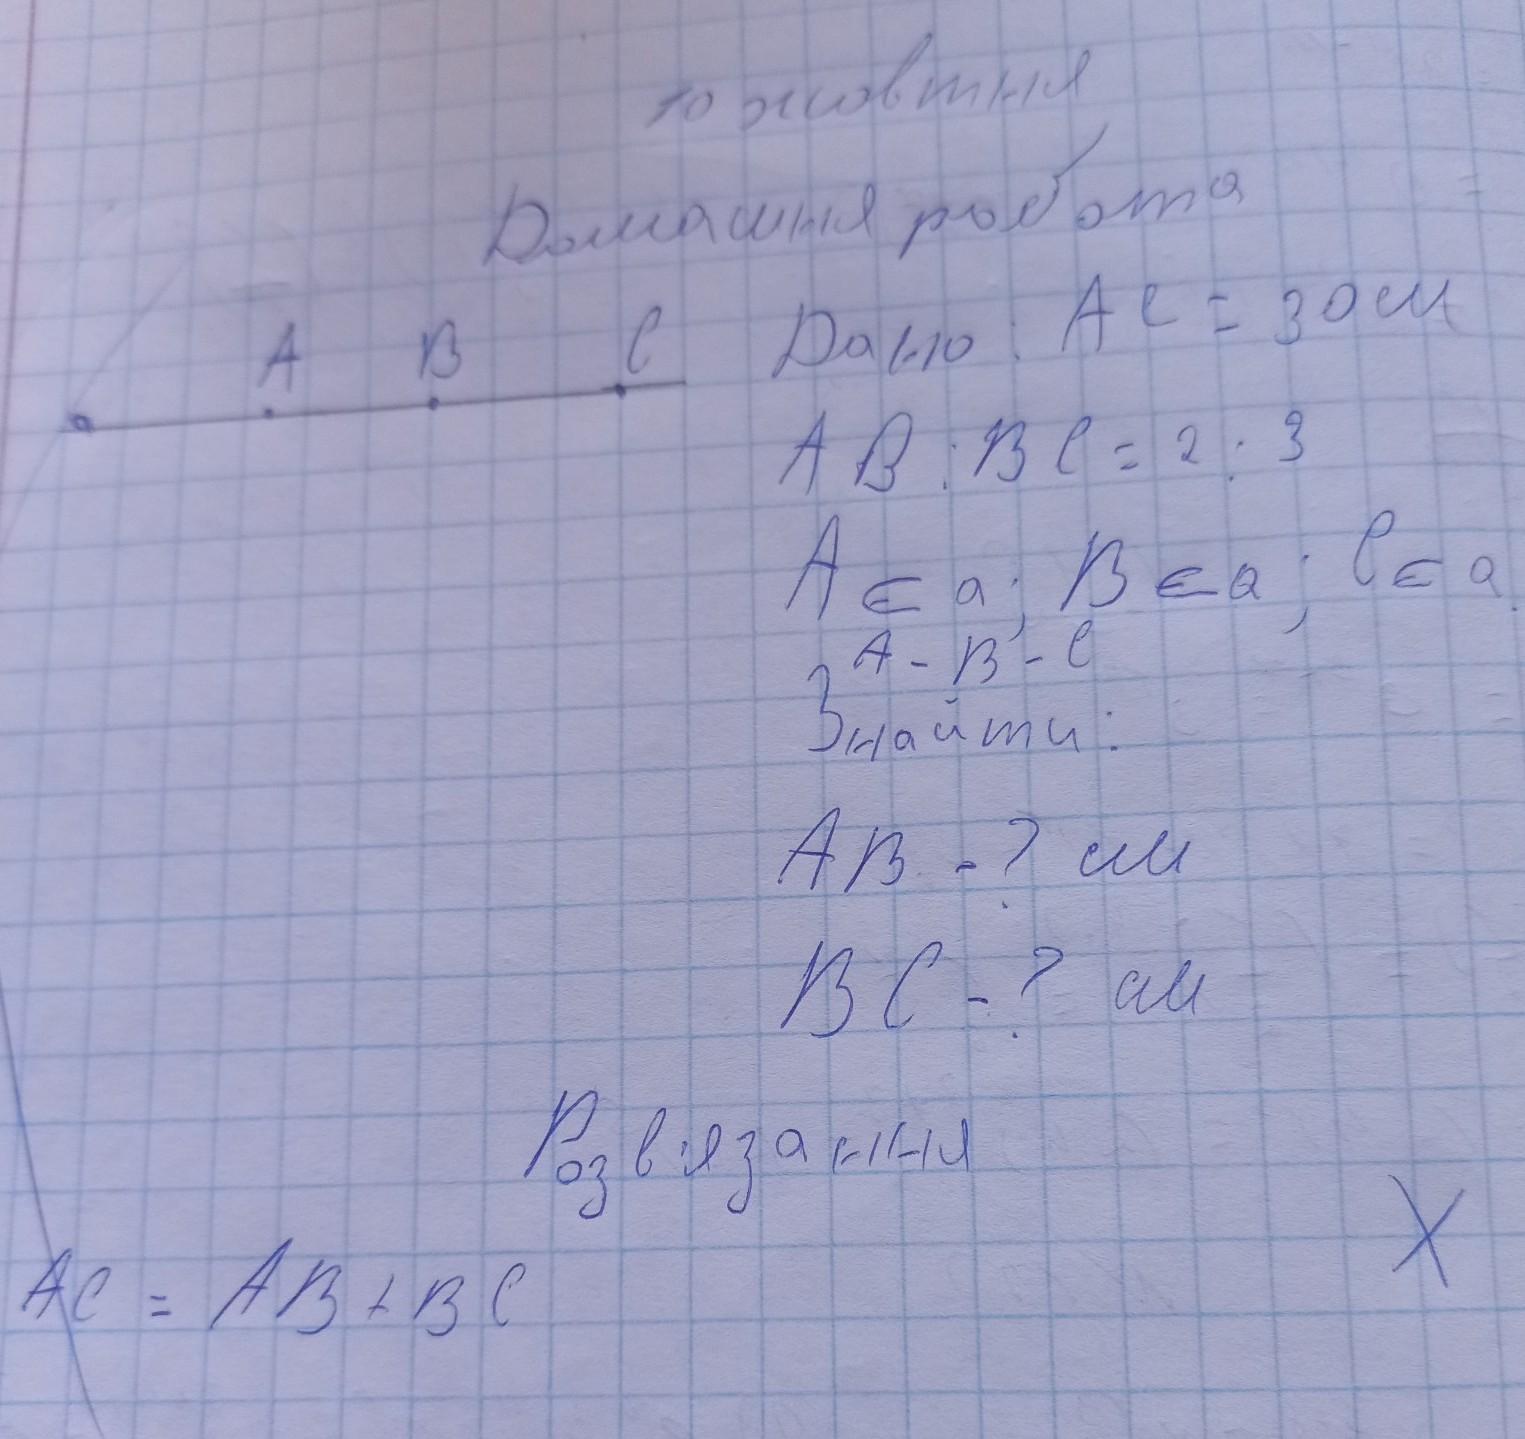 10 жовтня
Домашня робота
A B C
a
Дано: AC = 30 см
AB : BC = 2 : 3
A ∈ a; B ∈ a; C ∈ a
A - B - C
Знайти:
AB - ? см
BC - ? см
Розв'язання
X
AC = AB + BC